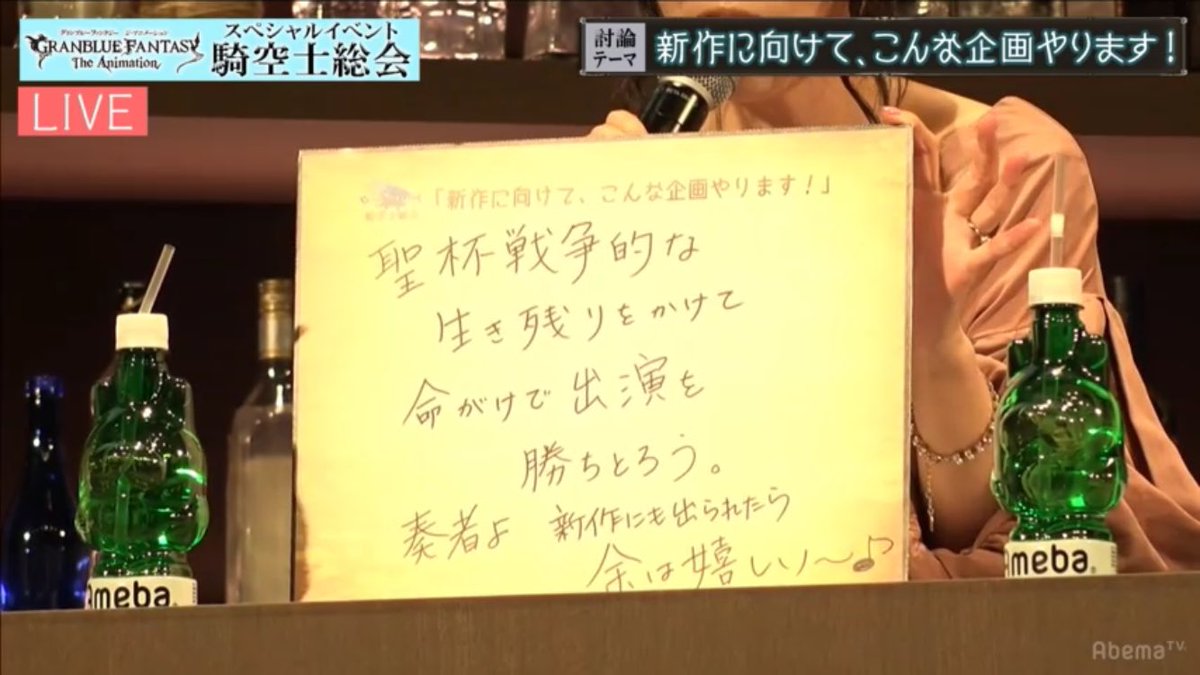 グランブルーファンタジー ジ・アニメーション
GRANBLUE FANTASY
The Animation
スペシャルイベント
騎空士総会
LIVE
討論
テーマ
新作に向けて、こんな企画やります!
「新作に向けて、こんな企画やります!」
聖杯戦争的な
生き残りをかけて
命がけで出演を
勝ちとろう。
奏者よ 新作にも出られたら
余は嬉しい〜♪
Ameba
Ameba
AbemaTV